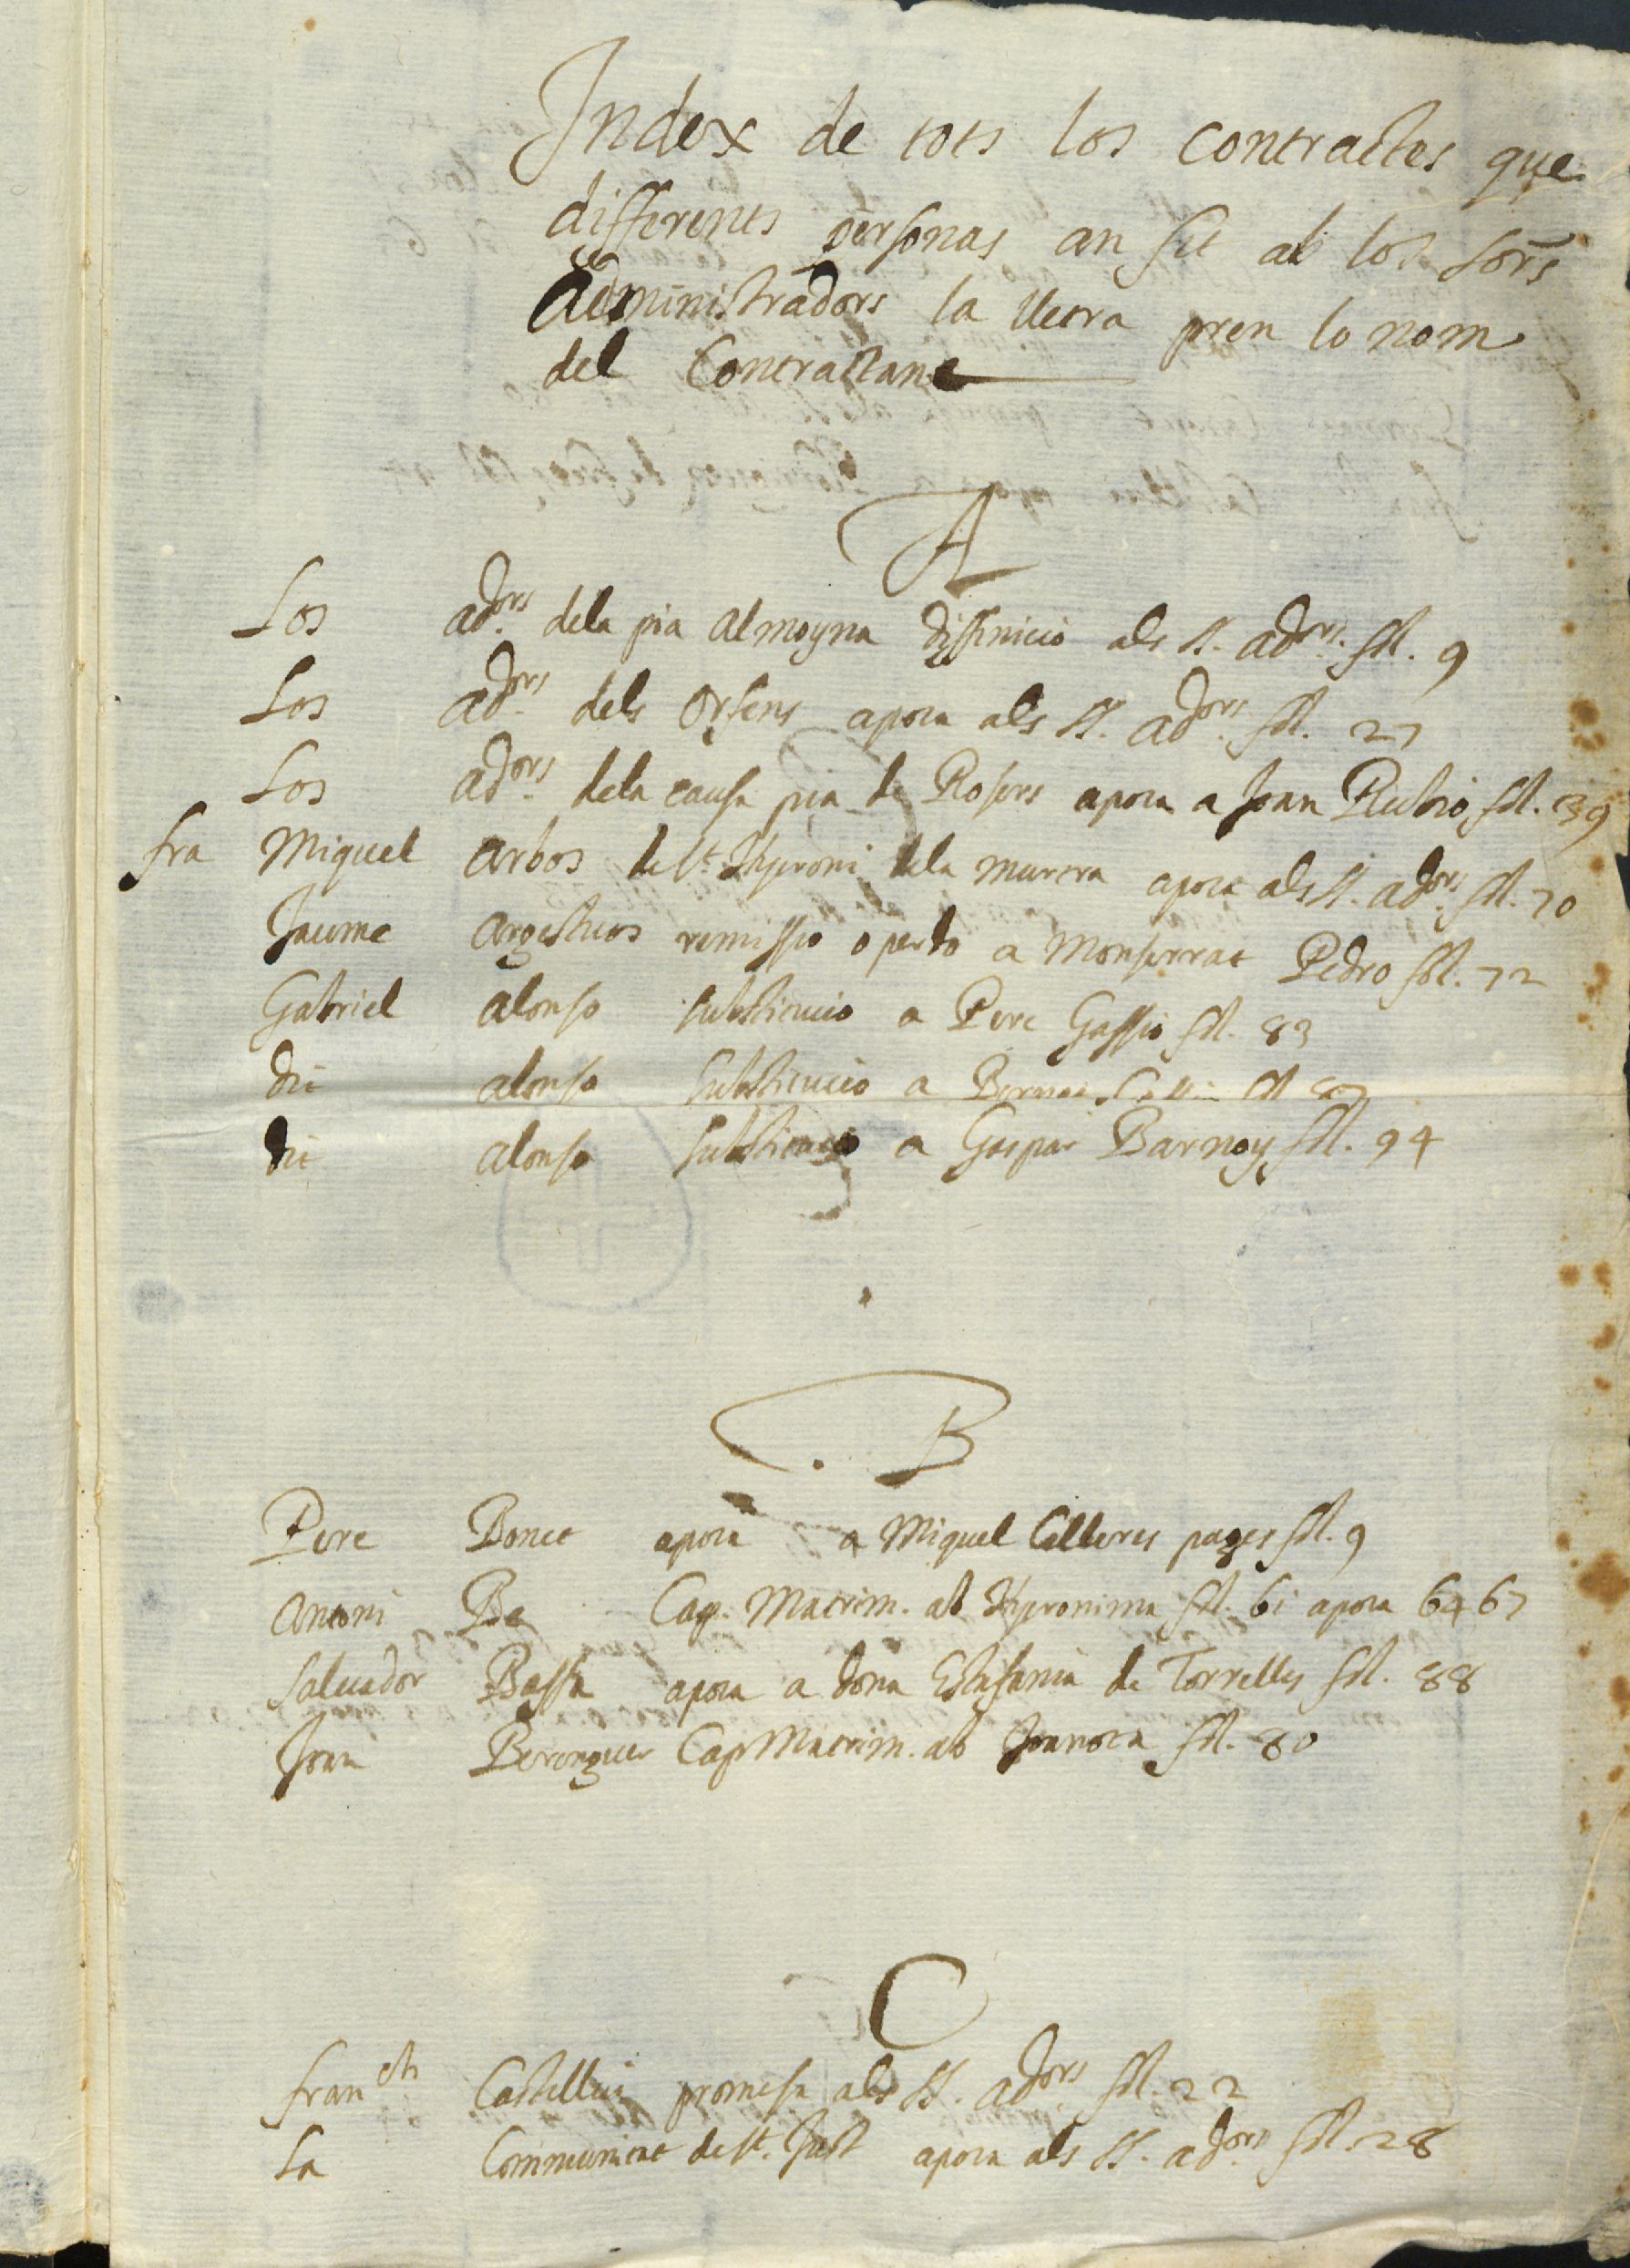 Index de tots los contractes que
differents personas an fet ab los sors
Administradors la lletra pren lo nom
del Contractant
A
Los adors. dela pia Almoyna diffinicio als SS. adors. fol. 9
Los adors. dels Orfens apoca als SS. adors. fol. 27
Los adors. dela causa pia de Rosers apoca a Joan Rubio fol. 39
fra Miquel Arbos de St. Hyeroni dela murtra apoca als SS. adors. fol. 70
Jaume remissio o perdo a Monserrat Pedro fol. 72
Gabriel Alonso substitucio a Pere Gassio fol. 83
dit alonso substitucio a
dit alonso substitucio a Gaspar Barnoy fol. 94
B
Pere Bonet apoca a Miquel Celleres pages fol. 9
Antoni Be Cap. Matrim. ab Hyeronima fol. 61 apoca 64 67
Salvador Bassa apoca a dona Estefania de Torrelles fol. 88
Joan Berenguer Cap Matrim. ab Joanota fol. 80
C
Franch. Castellvi promesa als SS. adors. fol. 22
La Communitat de St. Just apoca als SS. adors. fol. 28